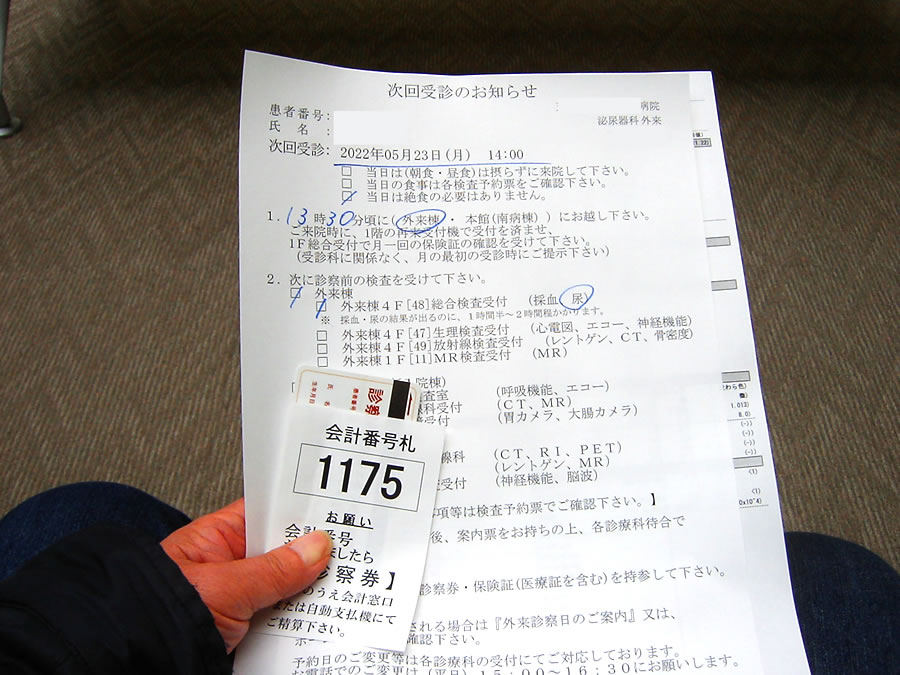 次回受診のお知らせ
病院
患者番号:
泌尿器科外来
氏 名 :
次回受診: 2022年05月23日(月) 14:00
□ 当日は(朝食・昼食)は摂らずに来院して下さい。
□ 当日の食事は各検査予約票をご確認下さい。
□ 当日は絶食の必要はありません。
1. 13時30分頃に(外来棟・ 本館(南病棟))にお越し下さい。
ご来院時に、1階の再来受付機で受付を済ませ、
1F総合受付で月一回の保険証の確認を受けて下さい。
(受診科に関係なく、月の最初の受診時にご提示下さい)
2. 次に診察前の検査を受けて下さい。
□ 外来棟
□ 外来棟4F[48]総合検査受付 (採血、尿)
※ 採血・尿の結果が出るのに、1時間半~2時間程かかります。
□ 外来棟4F[47]生理検査受付 (心電図、エコー、神経機能)
□ 外来棟4F[49]放射線検査受付 (レントゲン、CT、骨密度)
□ 外来棟1F[11]MR検査受付 (MR)
院棟)
査室 (呼吸機能、エコー)
科受付 (CT、MR)
受付 (胃カメラ、大腸カメラ)
線科 (CT、RI、PET)
(レントゲン、MR)
受付 (神経機能、脳波)
項等は検査予約票でご確認下さい。】
後、案内票をお持ちの上、各診療科待合で
診察券・保険証(医療証を含む)を持参して下さい。
される場合は『外来診察日のご案内』又は、
確認下さい。
予約日のご変更等は各診療科の受付にてご対応しております。
お電話でのご変更は(平日)15:00~16:30にお願いします。
診察
患者番号
氏 名
生年月日
会計番号札
1175
お願い
会計番号
ましたら
診察券】
のうえ会計窓口
または自動支払機にて
ご精算下さい。
1.22)
(わら色)
1.013)
8.0)
(-))
(-))
(-))
(-))
(1)
(1)
0x10^4)